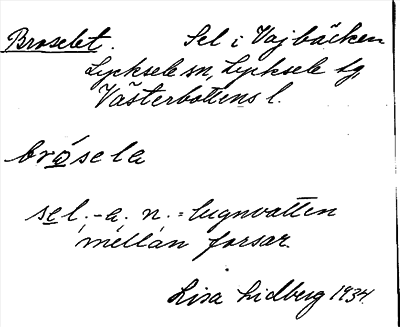 Broselet. Sel i Vajbäcken
Lycksele sn, Lycksele lg
Västerbottens l.
brósela
sel. -a. n. = lugnvatten
mellan forsar.
Lisa Lidberg 1934.